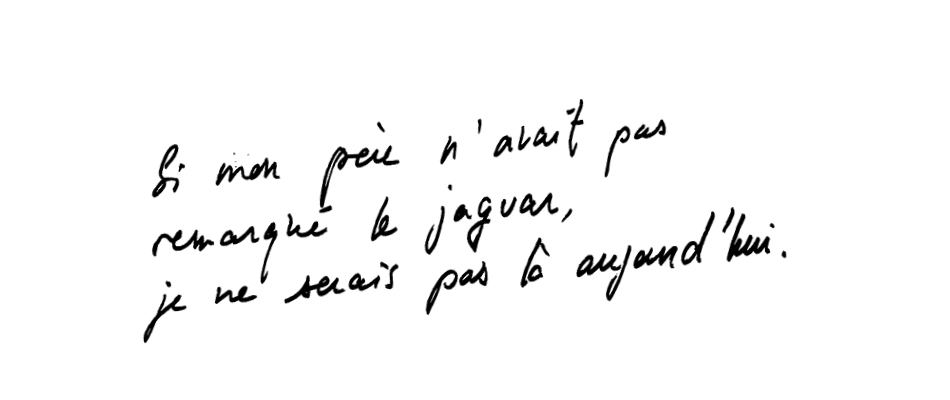 Si mon père n'avait pas
remarqué le jaguar,
je ne serais pas là aujourd'hui.